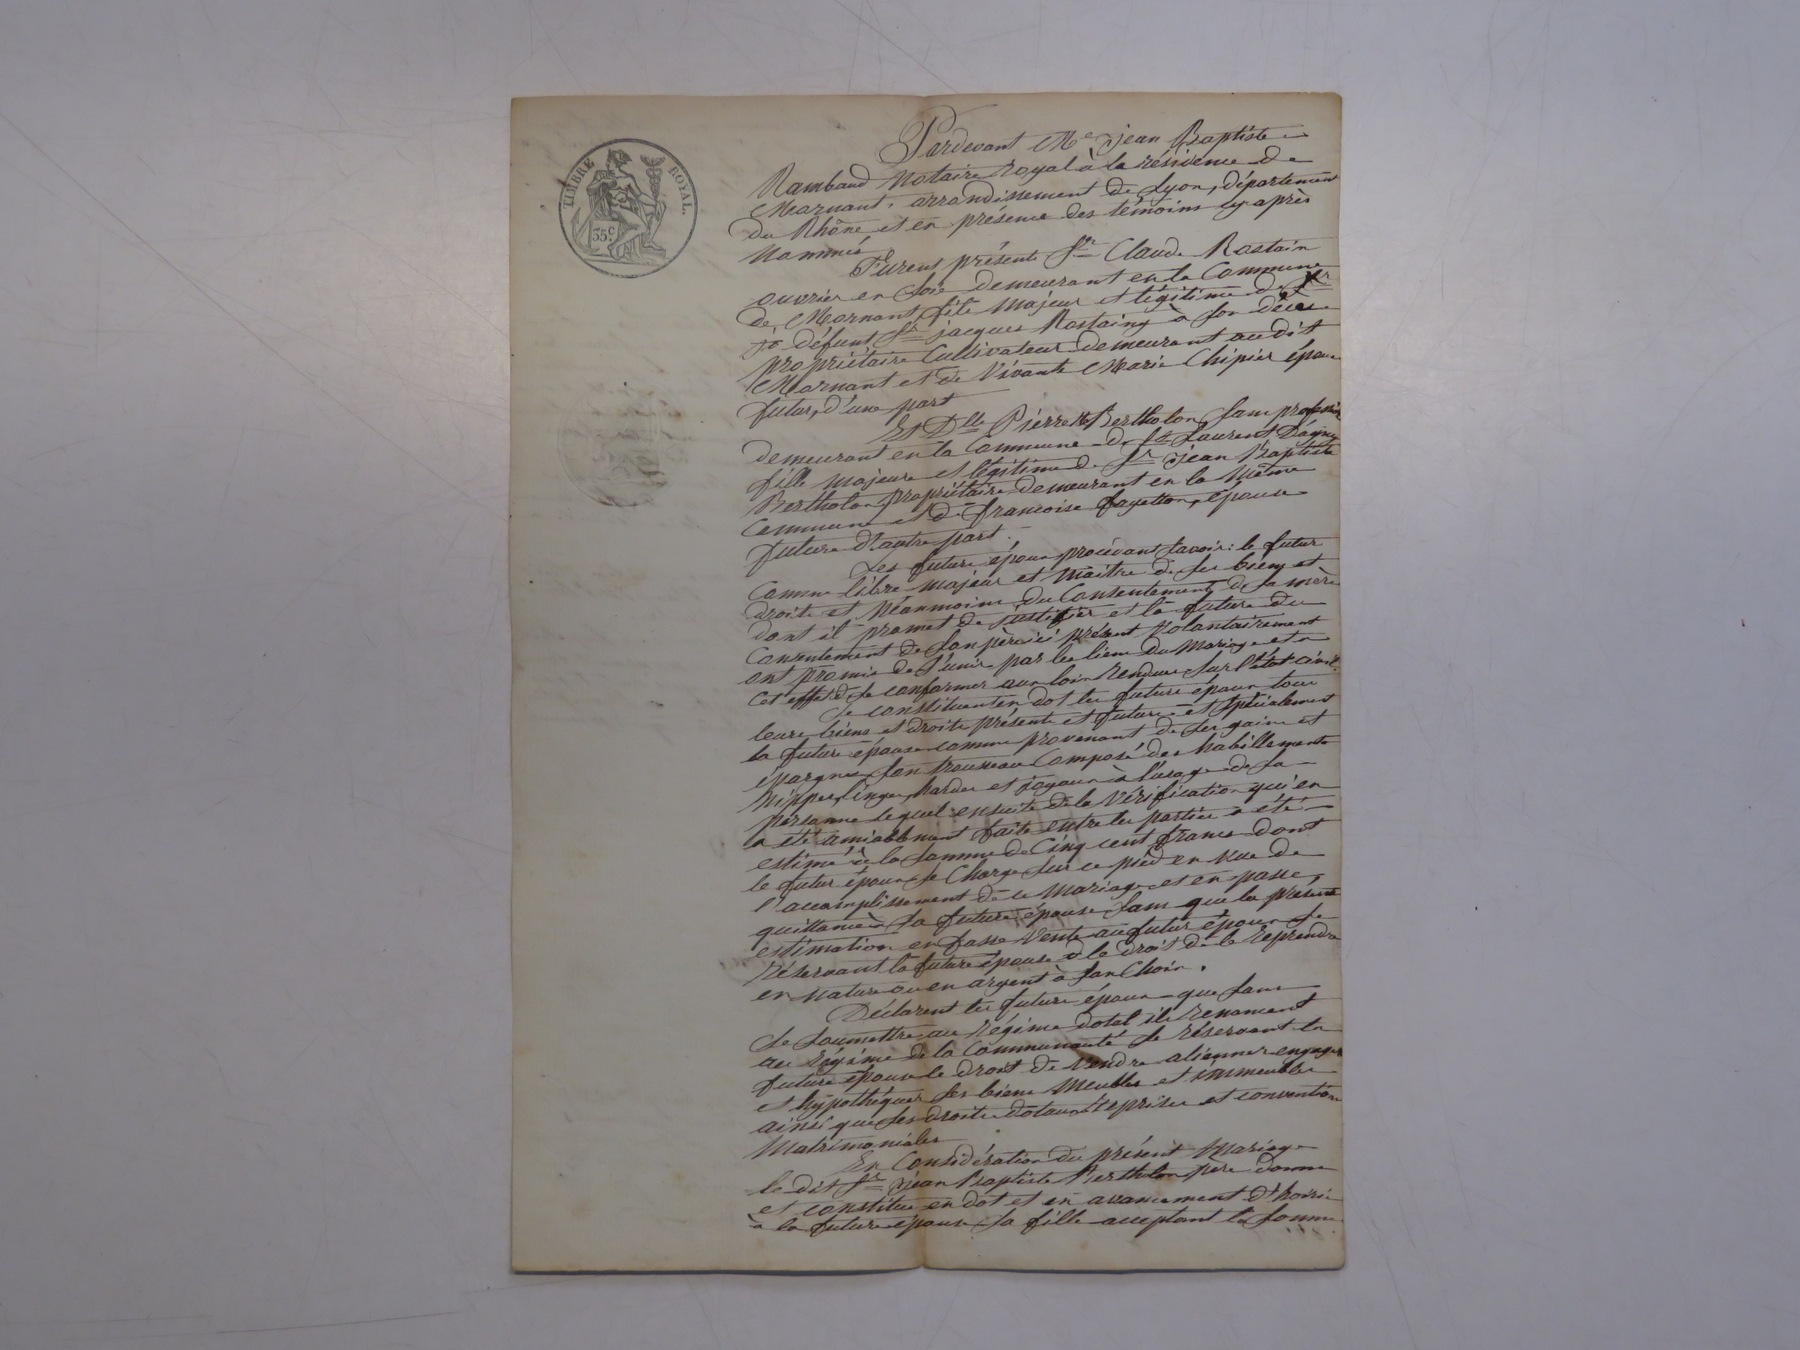 TIMBRE ROYAL.
35c.
Pardevant Me jean Baptiste
Rambaud Notaire Royal à la résidence de
Mornant, arrondissement de Lyon, département
du Rhône et en présence des témoins cy après
Nommés
Furent présents Sr Claude Rostain
ouvrier en soie demeurant en la Commune
de Mornant, fils Majeur et légitime de
défunt Sr jacques Rostaing à son décès
propriétaire Cultivateur demeurant au dit
Mornant et de Vivante Marie Chipier époux
futur, d'une part
Et Dlle Pierrette Bertholon, sans profession
demeurant en la Commune de St Laurent Dagny
fille majeure et légitime de Sr jean Baptiste
Bertholon propriétaire demeurant en la Même
Commune et de francoise fayetton, épouse
future d'autre part.
Les futurs époux procédant savoir: le futur
Comme libre majeur et Maitre de ses biens et
droits et Néanmoins du Consentement de sa mère
dont il promet de justifier et la future du
Consentement de son père ici présent Volontairement
ont promis de s'unir par les liens du Mariage et a
cet effet de se conformer aux lois Rendues sur l'état civil.
Se constituent en dot les futurs époux tous
leurs biens et droits présents et futurs et spécialement
la future épouse comme provenant de ses gains et
épargnes son trousseau Composé des habillements
Nippes, linges, hardes et joyaux à l'usage de sa
personne lequel ensuite de la Vérification qui en
a été amiablement faite entre les parties a été
estimé à la somme de Cinq cent francs dont
le futur époux se Charge sur ce pied en vue de
l'accomplissement de ce Mariage et en passe
quittance à sa future épouse sans que la présente
estimation en fasse Vente au futur époux se
Réservant la future épouse le droit de le Reprendre
en Nature ou en argent à son Choix.
Déclarent les futurs époux que sans
se soumettre au Régime dotal ils Renoncent
au Régime de la Communauté se Réservant la
future épouse le droit de Vendre alienner engager
et hypothéquer ses biens Meubles et immeubles
ainsi que ses droits dotaux Reprises et conventions
Matrimoniales
En Considération du présent Mariage
le dit Sr jean Baptiste Bertholon père donne
et constitue en dot et en avancement d'hoirie
à la future épouse sa fille acceptant la somme